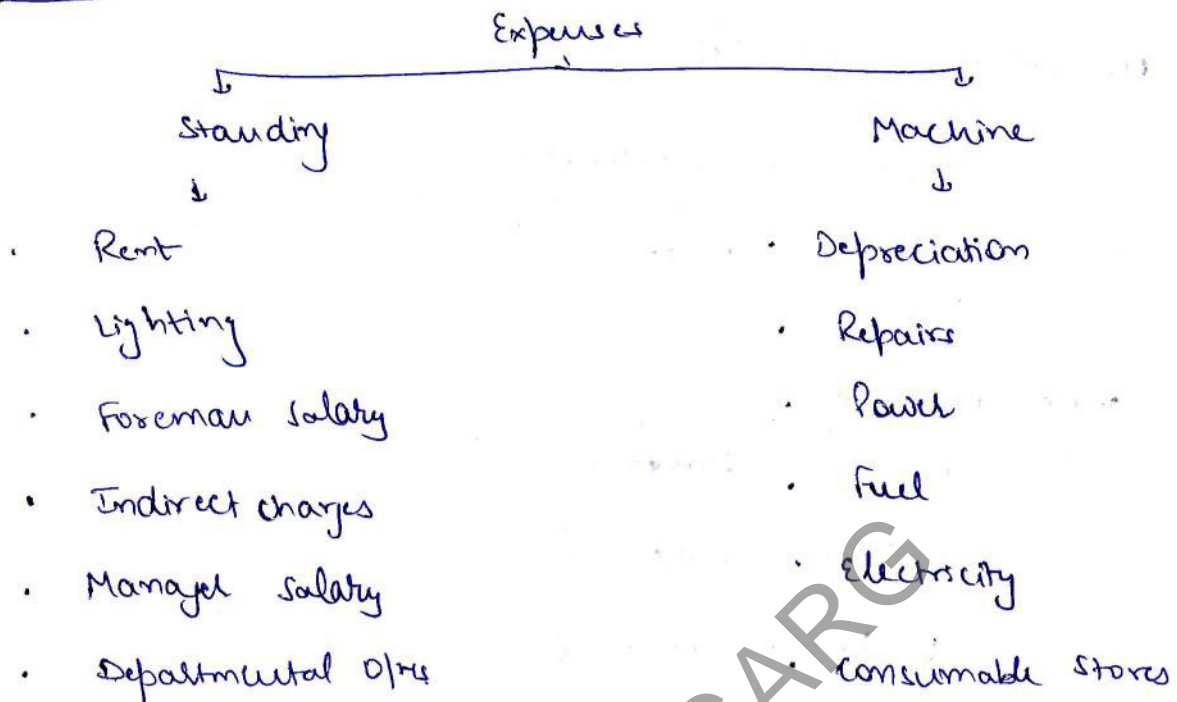 Expenses
Standing
Machine
Rent
Lighting
Foreman Salary
Indirect charges
Manager Salary
Departmental O/Hs
Depreciation
Repairs
Power
Fuel
Electricity
Consumable Stores
GARG